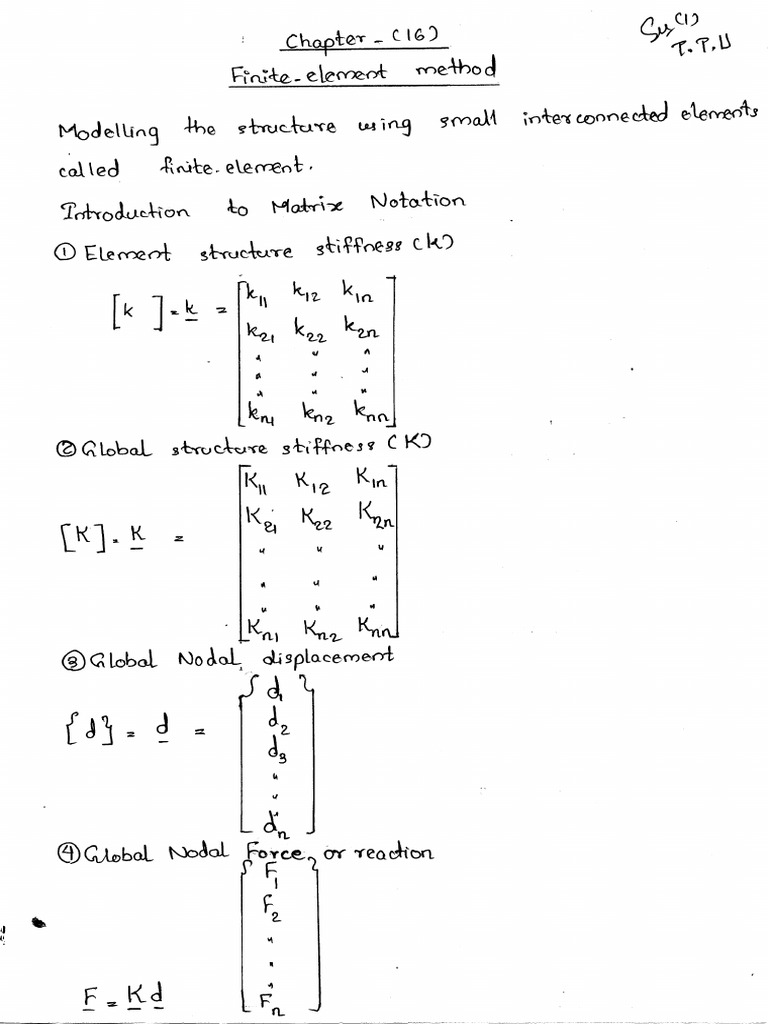 Chapter - (16)
(1)
T.P.U
Finite-element method
Modelling the structure using small interconnected elements
called finite-element.
Introduction to Matrix Notation
① Element structure stiffness (k)
[k ] = k = [k11 k12 k1n
k21 k22 k2n
" " "
" " "
" " "
kn1 kn2 knn]
② Global structure stiffness (K)
[K] = K = [K11 K12 K1n
K21 K22 K2n
" " "
" " "
" " "
Kn1 Kn2 Knn]
③ Global Nodal displacement
{d} = d = {d1
d2
d3
"
"
dn}
④ Global Nodal Force or reaction
{F1
F2
"
"
"
Fn}
F = K d